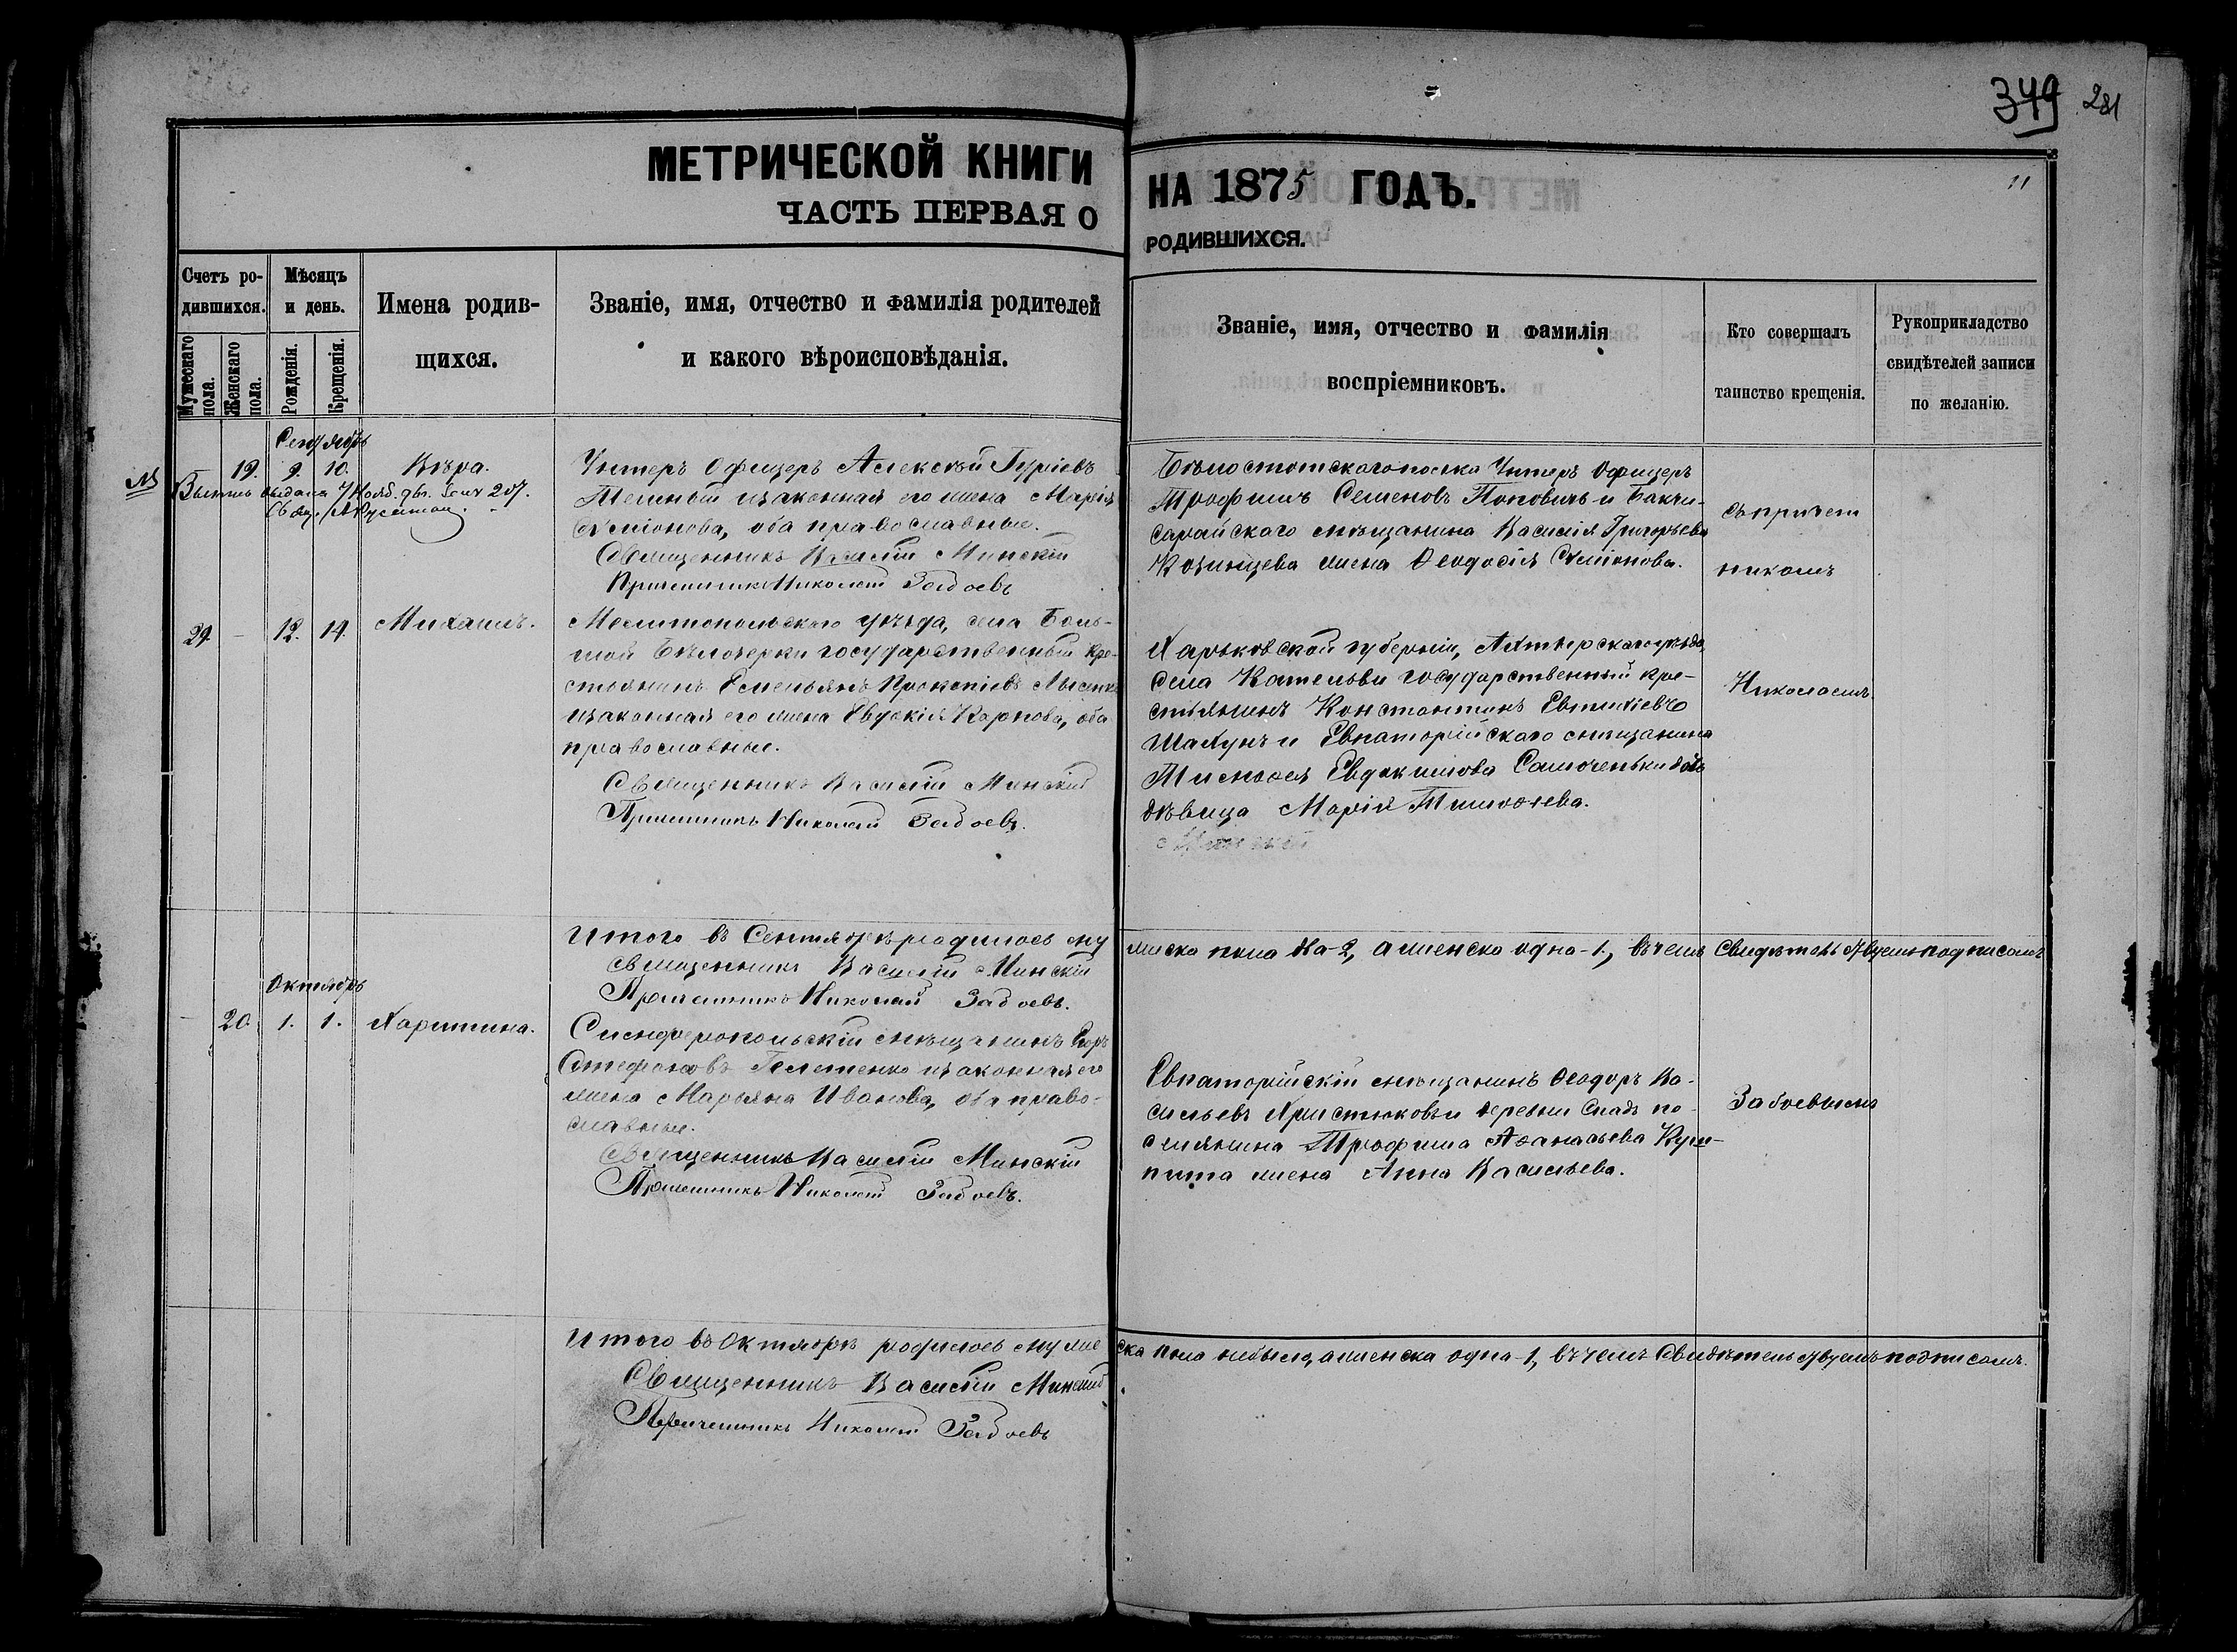 349 281
11
МЕТРИЧЕСКОЙ КНИГИ
ЧАСТЬ ПЕРВАЯ О
НА 1875 ГОДЪ.
РОДИВШИХСЯ.
Счетъ ро-
дившихся.
Мужескаго
пола.
Женскаго
пола.
Мѣсяцъ
и день.
Рожденія.
Крещенія.
Имена родив-
щихся.
Званіе, имя, отчество и фамилія родителей
и какого вѣроисповѣданія.
Званіе, имя, отчество и фамилія
воспріемниковъ.
Кто совершалъ
таинство крещенія.
Рукоприкладство
свидѣтелей записи
по желанію.
Сентябрь
19. 9. 10. Вѣра.
выдана 207.
Унтеръ Офицеръ Алексѣй Гуріевъ
изаконная его жена Марія
оба православные.
Священникъ Василій Минскій
Причетникъ Николай Забоевъ
Бѣлостокскаго полка Унтеръ Офицеръ
Трофимъ Семеновъ Поповичь и Бакчи-
сарайскаго мѣщанина Василія Григорьева
жена Ѳеодосія
Съ причет
никомъ
24 - 12. 14. Михаилъ.
Мелитопольскаго уѣзда, села Боль-
шой Бѣлозерки государственный кре-
стьянинъ Емельянъ Прокопіевъ
изаконная его жена Евдокія Карпова, оба
православные.
Священникъ Василій Минскій
Причетникъ Николай Забоевъ.
Харьковской губерніи, Ахтырскаго уѣзда,
села Котельвы государственный кре-
стьянинъ Константинъ Евтихіевъ
Шахунъ и Евпаторійскаго мѣщанина
Тимоѳея Евдокимова
дѣвица Марія Тимоѳеева.
Николаемъ
Итого въ Сентябрѣ родилось му
жеска пола два-2, а женска одна-1, въ чемъ Свидѣтельствуемъ подписомъ
Священникъ Василій Минскій
Причетникъ Николай Забоевъ.
Октябрь
- 20. 1. 1. Харитина.
Симферопольскій мѣщанинъ Егоръ
Стефановъ изаконная его
жена Марьяна Иванова, оба право-
славные.
Священникъ Василій Минскій
Причетникъ Николай Забоевъ.
Евпаторійскій мѣщанинъ Ѳеодоръ Ва-
сильевъ и деревни по-
селянина Трофима Аѳанасьева
жена Анна Васильева.
Забоевымъ
Итого въ Октябрѣ родилось муже
ска пола небыло, а женска одна-1, въ чемъ Свидѣтельствуемъ подписомъ.
Священникъ Василій Минскій
Причетникъ Николай Забоевъ